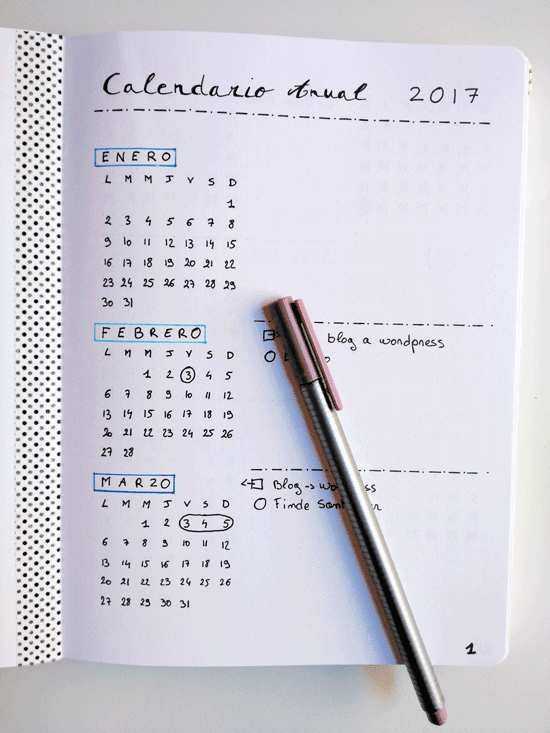 Calendario Anual 2017
ENERO
L M M J V S D
1
2 3 4 5 6 7 8
9 10 11 12 13 14 15
16 17 18 19 20 21 22
23 24 25 26 27 28 29
30 31
FEBRERO
blog a wordpress
L M M J V S D
1 2 3 4 5
6 7 8 9 10 11 12
13 14 15 16 17 18 19
20 21 22 23 24 25 26
27 28
MARZO
Blog → wordpress
L M M J V S D
Finde
1 2 3 4 5
6 7 8 9 10 11 12
13 14 15 16 17 18 19
20 21 22 23 24 25 26
27 28 29 30 31
1